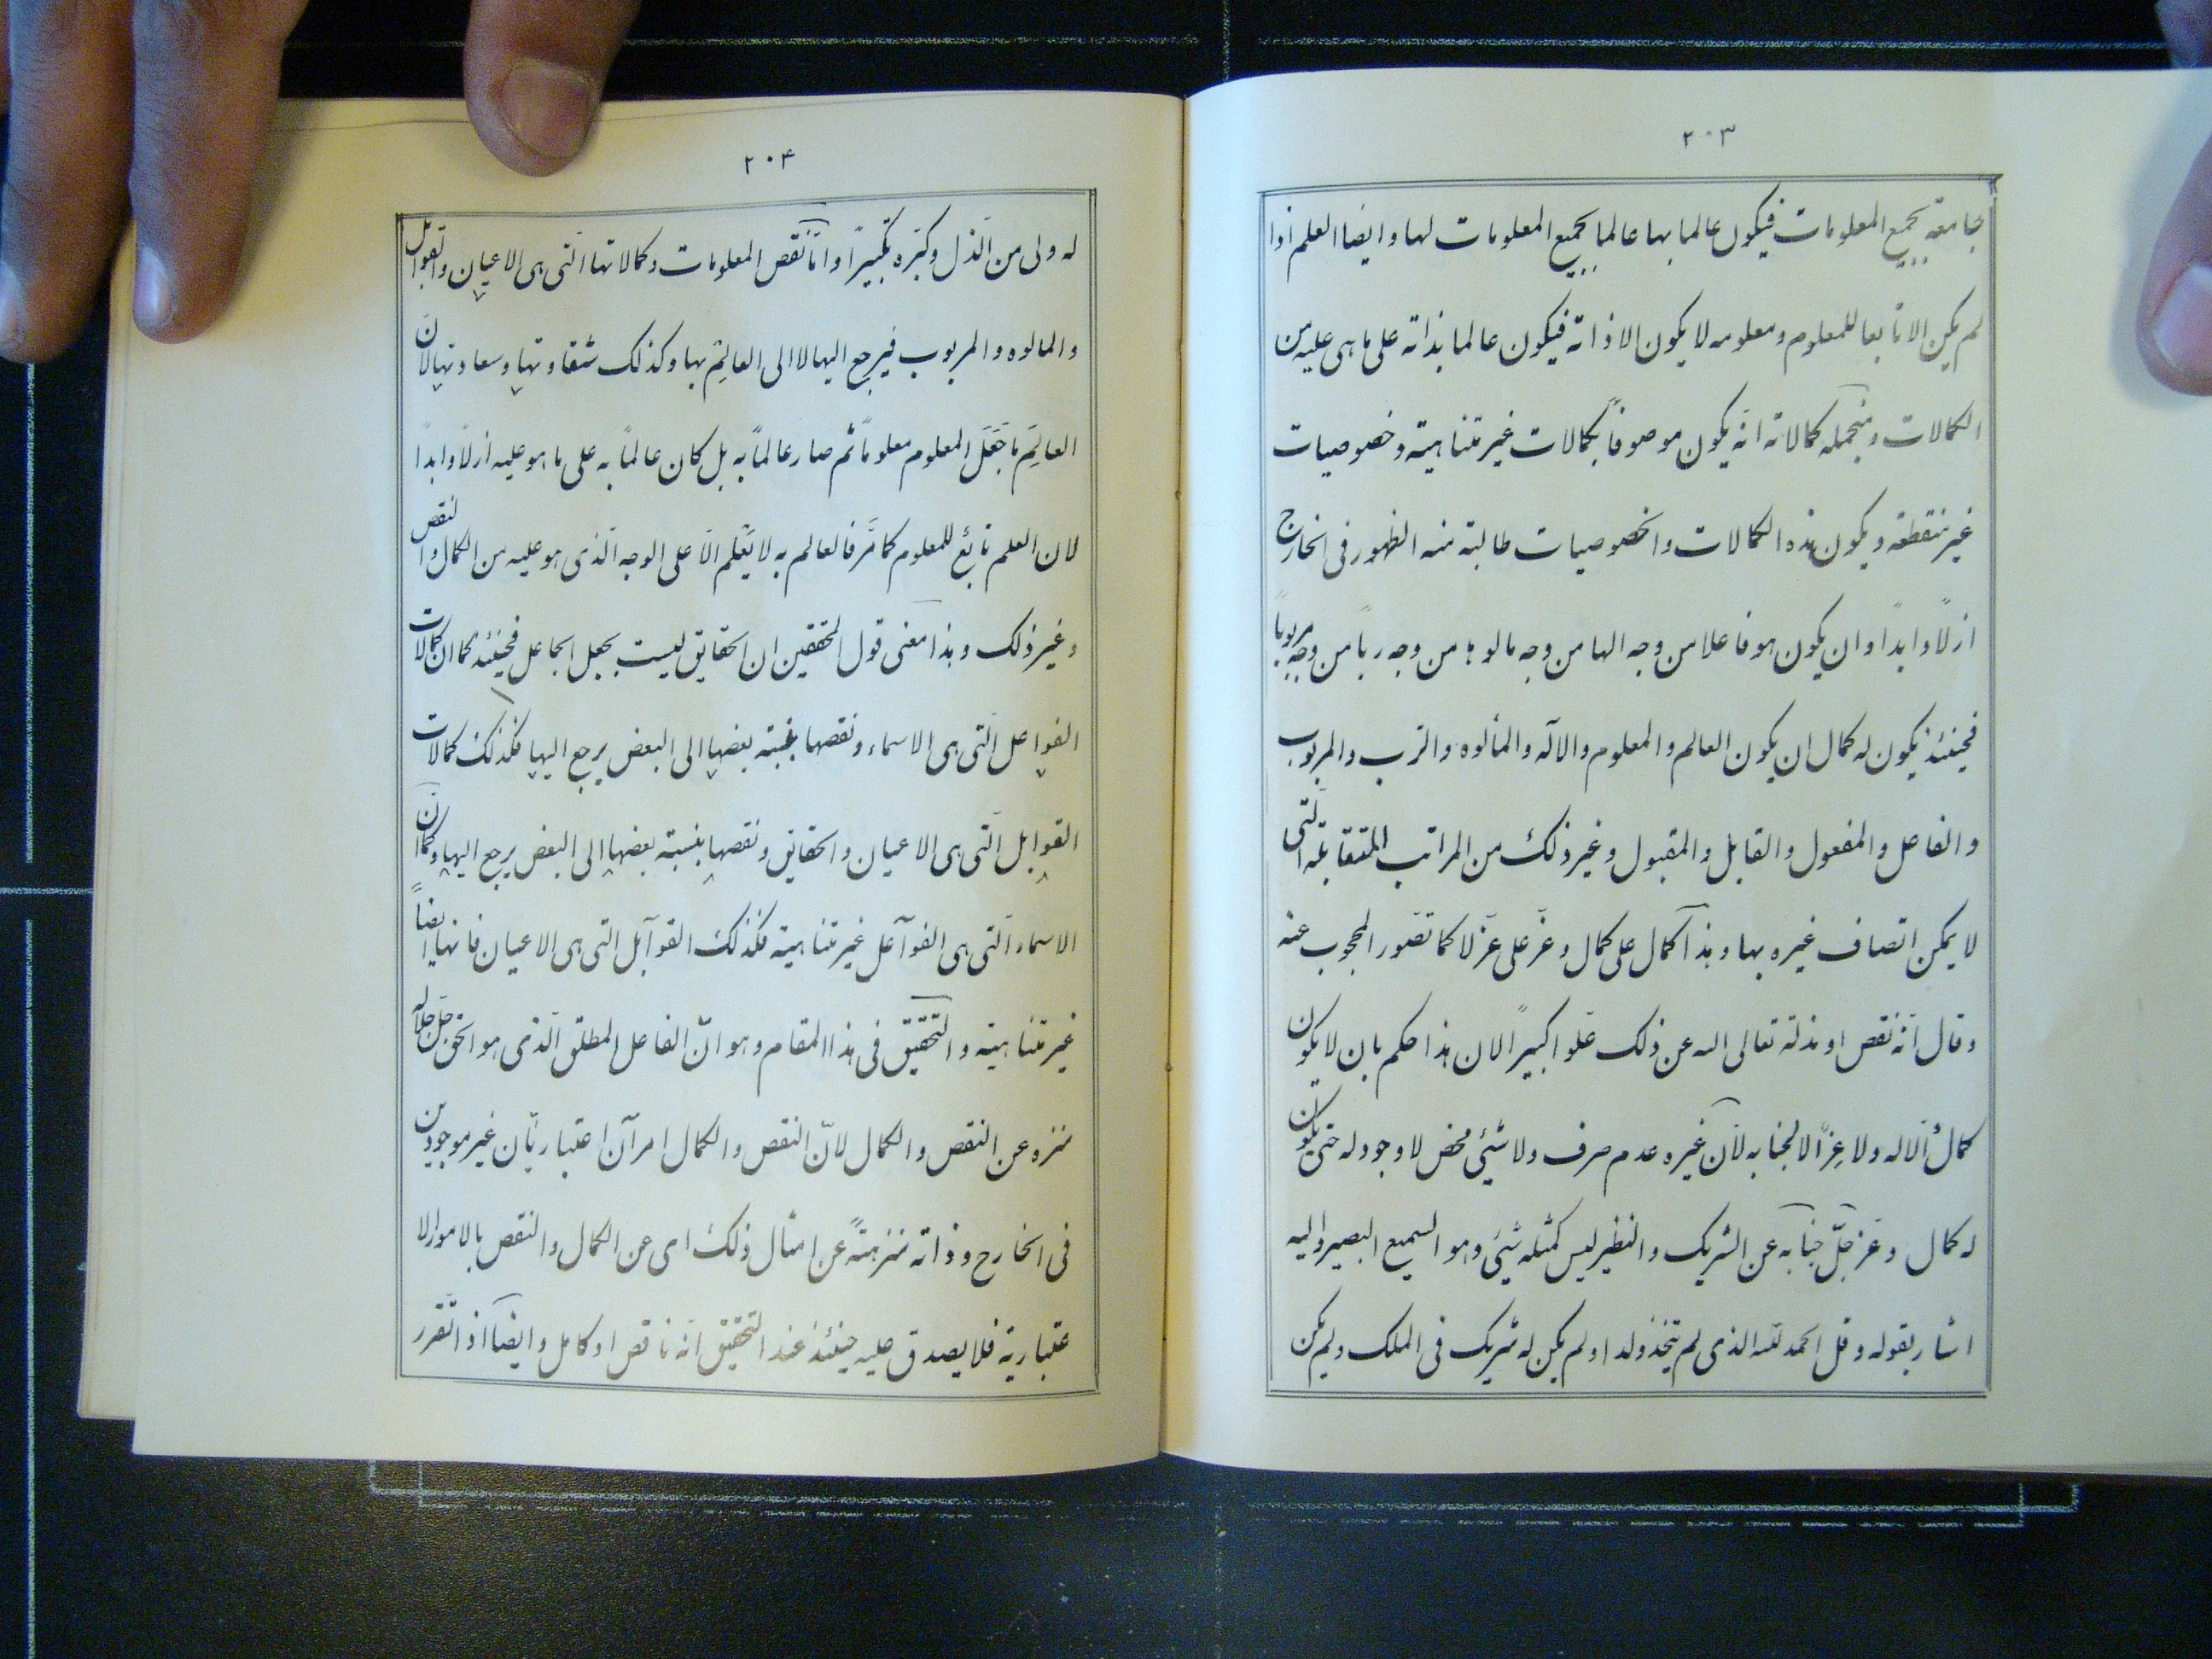 ۲۰۳
جامعة بجميع المعلومات فيكون عالما بها عالما بجميع المعلومات لها وايضا العلم اذا
لم يكن الا تابعا للمعلوم ومعلومه لا يكون الا ذاته فيكون عالما بذاته على ما هى عليه من
الكمالات ومنجمله كمالاته انّه يكون موصوفاً بكمالات غير متناهية وخصوصيات
غير منقطعة ويكون هذه الكمالات والخصوصيات طالبة منه الظهور فى الخارج
ازلاً وابداً وان يكون هو فاعلا من وجه الها من وجه مالوها من وجه رباً من وجه مربوباً
فحينئذ يكون له كمال ان يكون العالم والمعلوم والاله والمألوه والرب والمربوب
والفاعل والمفعول والقابل والمقبول وغير ذلك من المراتب المتقابلة الّتى
لا يمكن اتصاف غيره بها وهذا كمال على كمال وعزّ على عزّ لا كما تصور المحجوب عنه
وقال انّه نقص او مذلة تعالى الله عن ذلك علّوا كبيراً لان هذا حكم بان لا يكون
كمالٌ الّا له ولا عِزّاً الا لجنابه لانّ غيره عدم صرف ولا شيئى محض لا وجود له حتى يكون
له كمال وعز جلّ جنابه عن الشريك والنظير ليس كمثله شيئى وهو السميع البصير واليه
اشار بقوله وقل الحمد لله الذى لم يتخذ ولدا ولم يكن له شريك فى الملك ولم يكن
۲۰۴
له ولى من الّذل وكبّره تكبيراً وامّا نقص المعلومات وكمالاتها الّتى هى الاعيان والقوابل
والمالوه والمربوب فيرجع اليها لا الى العالِم بها وكذلك شقاوتها وسعادتها لانّ
العالِم ما جَعَلَ المعلوم معلوماً ثم صار عالماً به بل كان عالماً به على ما هو عليه ازلاً وابداً
لان العلم تابعٌ للمعلوم كما مَّر فالعالم به لا يَعْلم الّا على الوجه الّذى هو عليه من الكمال والنقص
وغير ذلك وهذا معنى قول المحققين ان الحقايق ليست بجعل الجاعل فحينئذ كما ان كمالات
الفواعل الّتى هى الاسماء ونقصها بنسبة بعضها الى البعض يرجع اليها فكذلك كمالات
القوابل الّتى هى الاعيان والحقايق ونقصها بنسبة بعضها الى البعض يرجع اليها وكما انّ
الاسماء الّتى هى الفواعل غير متناهية فكذلك القوابل التى هى الاعيان فانها ايضاً
غير متناهية والتحقيق فى هذا المقام وهو انّ الفاعل المطلق الّذى هو الحق جلّ جلاله
منزه عن النقص والكمال لانّ النقص والكمال امران اعتباريّان غير موجودين
فى الخارج وذاته منزهةً عن امثال ذلك اى عن الكمال والنقص بالامور الا
عتبارية فلا يصدق عليه حينئذ عند التحقيق انّه ناقص او كامل وايضا اذا تقّرر